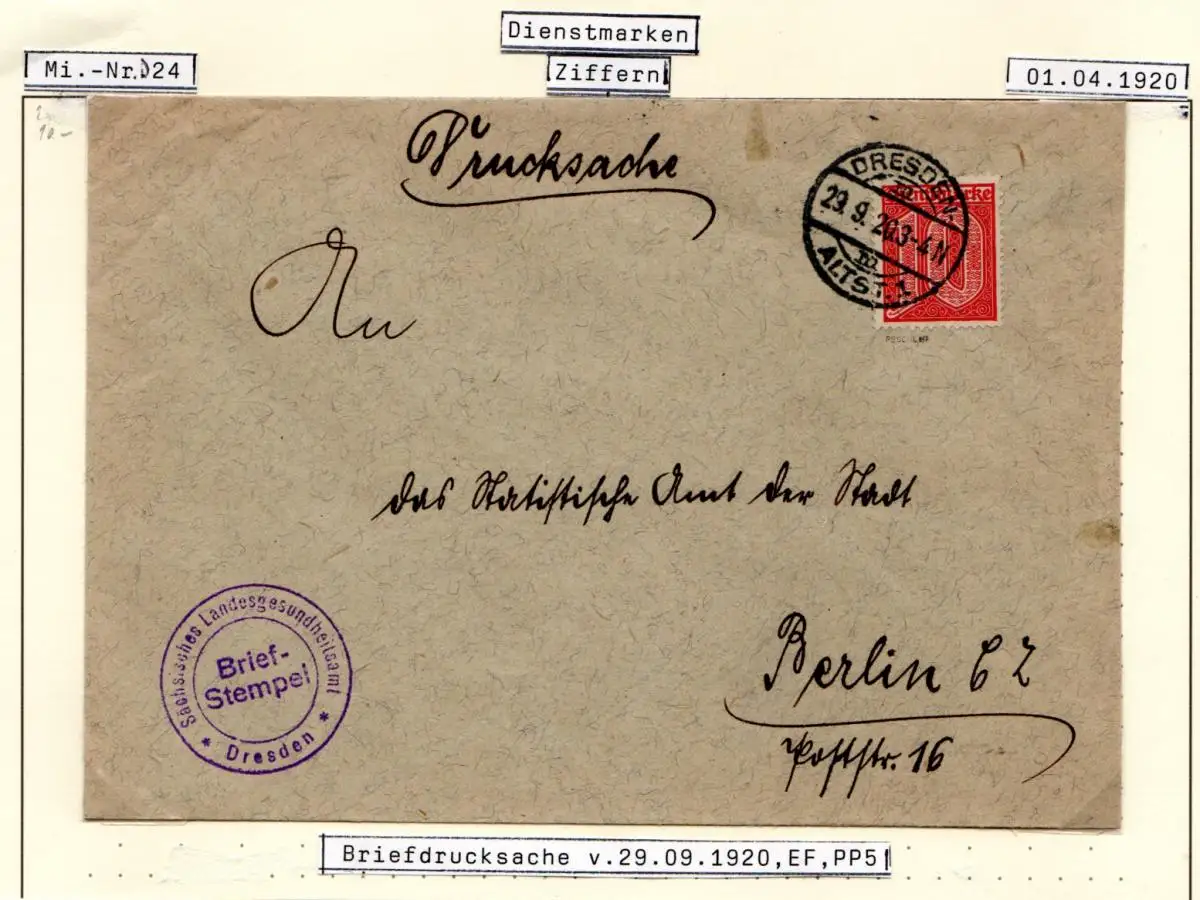 Dienstmarken
Ziffern
Mi.-Nr.D24
01.04.1920
Drucksache
An
das Statistische Amt der Stadt
Berlin C 2
Poststr. 16
DRESDEN-
29.9.20.3-4N
ALTST. 1
10
Sächsisches Landesgesundheitsamt
Brief-
Stempel
* Dresden *
Briefdrucksache v.29.09.1920,EF,PP5